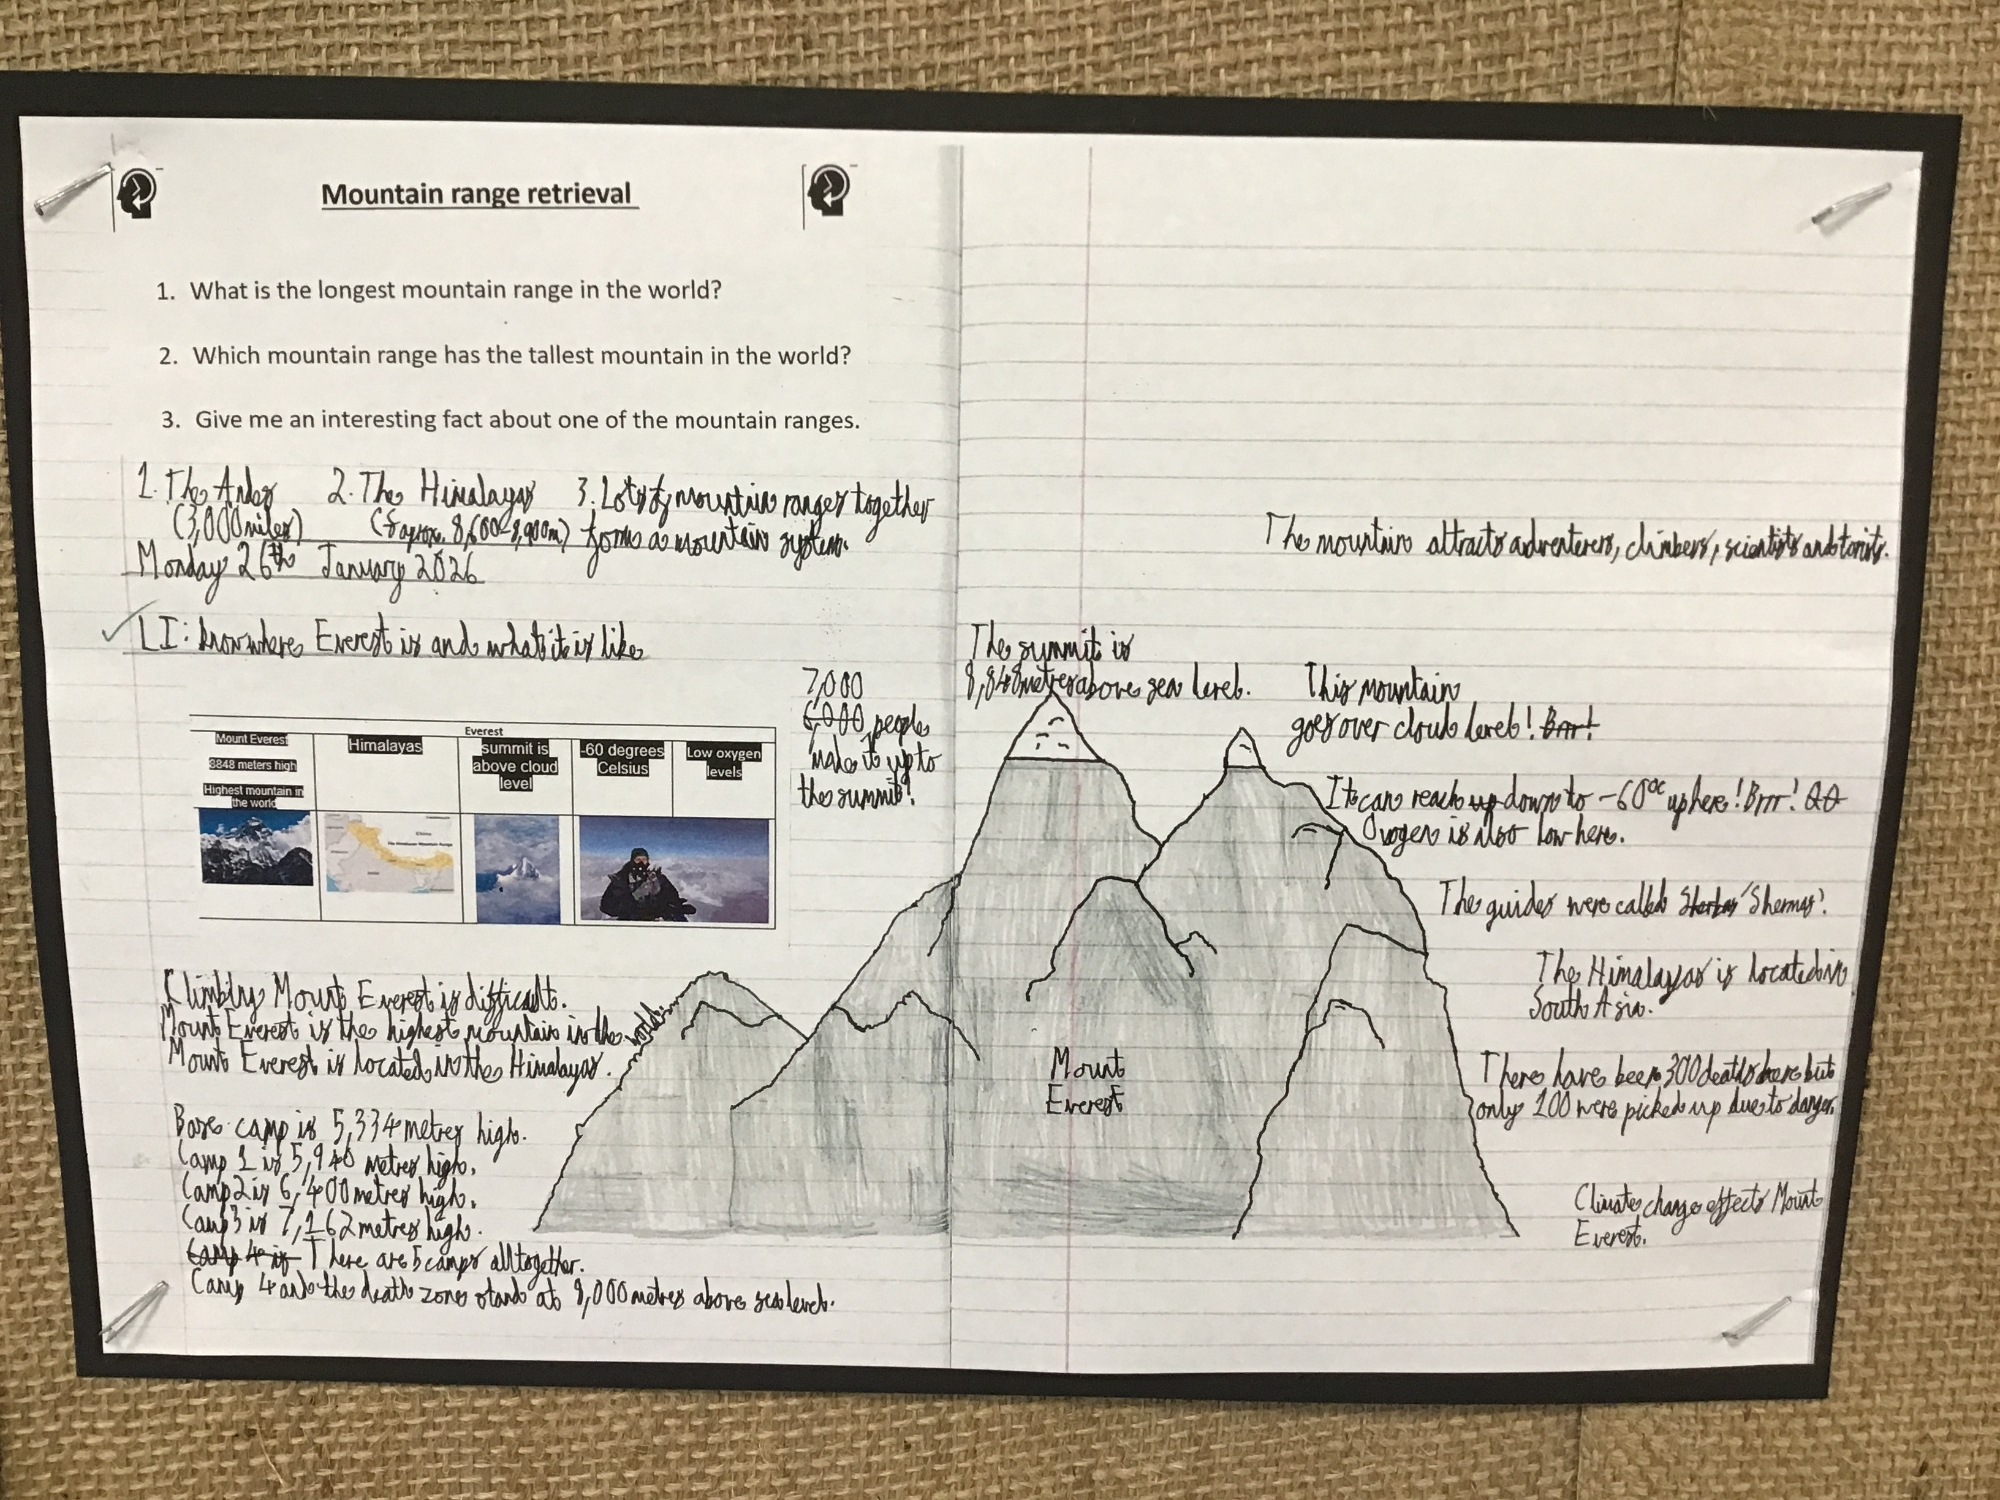 Mountain range retrieval
1. What is the longest mountain range in the world?
2. Which mountain range has the tallest mountain in the world?
3. Give me an interesting fact about one of the mountain ranges.
1. The Andes 2. The Himalayas 3. Lots of mountain ranges together
(3,000 miles) aprox. 8,600-8,900m) forms a mountain system.
Monday 26th January 2026
LI: know where Everest is and what it is like
Everest
Mount Everest
8848 meters high
Highest mountain in
the world
Himalayas
summit is
above cloud
level
-60 degrees
Celsius
Low oxygen
levels
China
The Himalayan Mountain Range
7,000
6,000 people
make it up to
the summit!
The summit is
8,848 metres above sea level.
The mountain attracts adventerers, climbers, scientists and torists.
This mountain
goes over cloud level! Brr!
It can reach up down to -60°c up here! Brrr!
Oxogen is also low here.
The guides were called Sherbas 'Shermas'.
The Himalayas is located in
South Asia.
There have been 300 deaths here but
only 100 were picked up due to danger.
Climate change effects Mount
Everest.
Mount
Everest
Climbing Mount Everest is difficult.
Mount Everest is the highest mountain in the world.
Mount Everest is located in the Himalayas.
Base camp is 5,334 metres high.
Camp 1 is 5,940 metres high.
Camp 2 is 6,400 metres high.
Camp 3 is 7,162 metres high.
Camp 4 is There are 5 camps alltogether.
Camp 4 and the death zone stand at 8,000 metres above sea level.